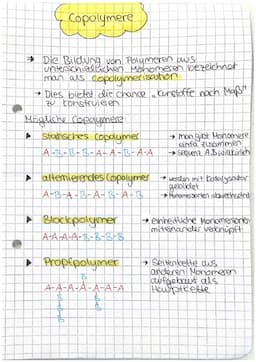 Copolymere
→ Die Bildung von Polymeren aus
unterschiedlichen Monomeren bezeichnet
man als Copolymerisation
→ Dies bietet die Chance „Kunstoffe nach Maß"
zu konstruieren
Mögliche Copolymere:
▶ statisches Copolymer → man gibt Monomere
einfa. zusammen
A-B-B-B-A-A-B-A-A → Sequenz A,B willkürlich
▶ alternierendes Copolymer → werden mit Katalysator
gebildet
A-B-A-B-A-B-A-B → Monomerarten abwechselnd
▶ Blockpolymer → einheitliche Monomerarten
miteinander verknüpft
A-A-A-A-B-B-B-B
▶ Propfpolymer → Seitenkette aus
anderen Monomeren
B aufgebaut als
A-A-A-A-A-A-A Hauptkette
B B
B B
B